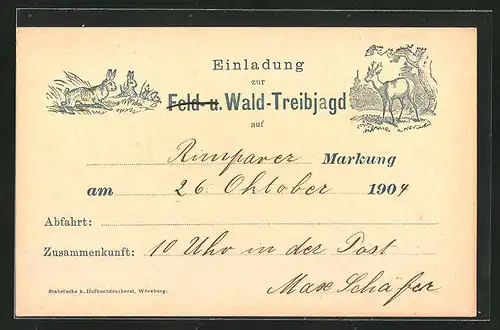 Einladung
zur
Feld- u. Wald-Treibjagd
auf
Rimparer Markung
am 26. Oktober 1904
Abfahrt:
Zusammenkunft: 10 Uhr in der Post
Max Schäfer
Stahel'sche k. Hofbuchdruckerei, Würzburg.